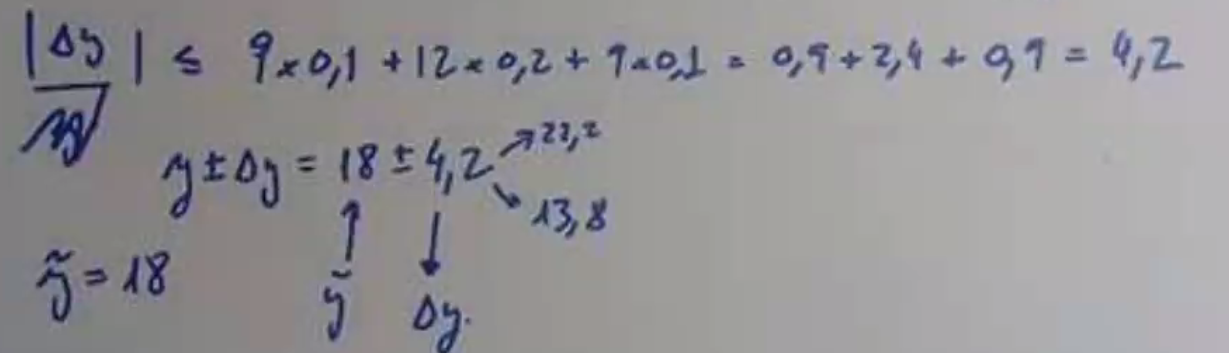 |Δy| ≤ 9×0,1 + 12×0,2 + 9×0,1 = 0,9 + 2,4 + 0,9 = 4,2
y ± Δy = 18 ± 4,2 ↗ 22,2
↘ 13,8
ỹ = 18 ỹ Δy.